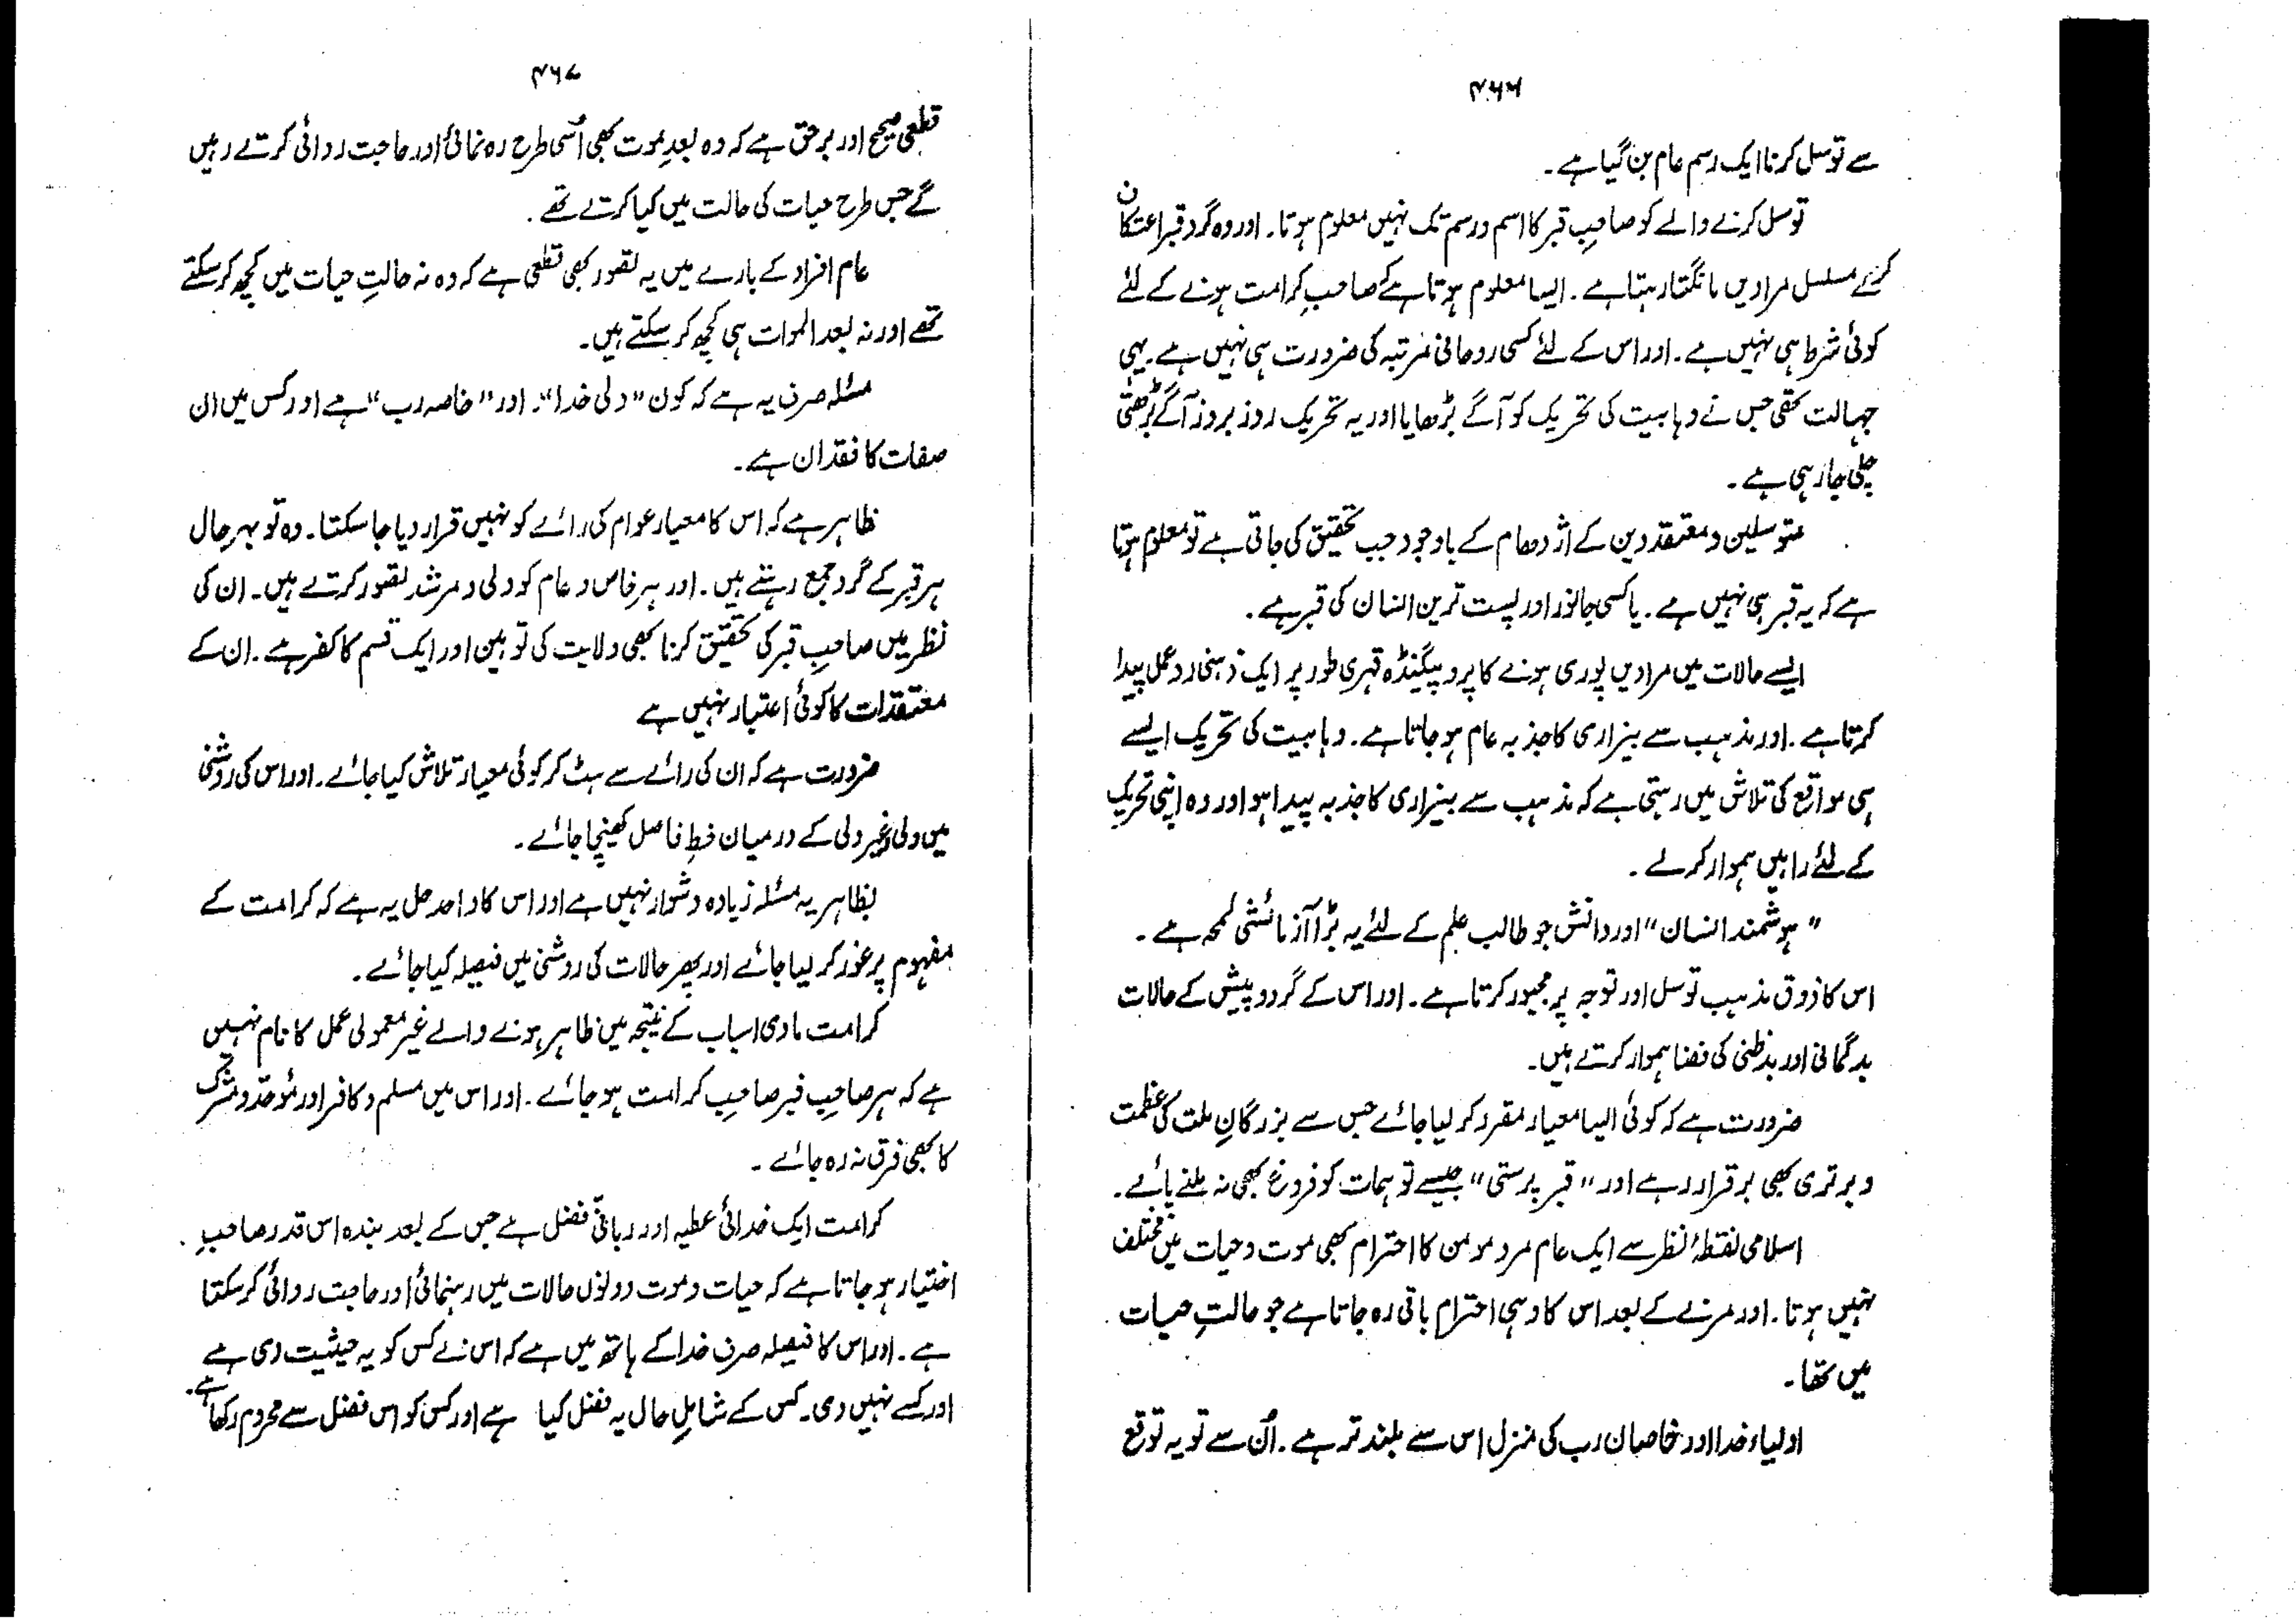 ۴۶۶
سے توسل کرنا ایک رسم عام بن گیا ہے۔
توسل کرنے والے کو صاحبِ قبر کا اسم ورسم تک نہیں معلوم ہوتا۔ اور وہ گرد قبر اعتکاف
کرکے مسلسل مرادیں مانگتا رہتا ہے۔ ایسا معلوم ہوتا ہے کہ صاحبِ کرامت ہونے کے لئے
کوئی شرط ہی نہیں ہے۔ اور اس کے لئے کسی روحانی مرتبہ کی ضرورت ہی نہیں ہے۔ یہی
جہالت تھی جس نے وہابیت کی تحریک کو آگے بڑھایا اور یہ تحریک روز بروز آگے بڑھتی
چلی جا رہی ہے۔
متوسلین و معتقدین کے اژدھام کے باوجود جب تحقیق کی جاتی ہے تو معلوم ہوتا
ہے کہ یہ قبر ہی نہیں ہے۔ یا کسی جانور اور پست ترین انسان کی قبر ہے۔
ایسے حالات میں مرادیں پوری ہونے کا پروپیگنڈہ قہری طور پر ایک ذہنی ردعمل پیدا
کرتا ہے۔ اور مذہب سے بیزاری کا جذبہ عام ہو جاتا ہے۔ وہابیت کی تحریک ایسے
ہی مواقع کی تلاش میں رہتی ہے کہ مذہب سے بیزاری کا جذبہ پیدا ہو اور وہ اپنی تحریک
کے لئے راہیں ہموار کرلے۔
"ہوشمند انسان" اور دانش جو طالب علم کے لئے یہ بڑا آزمائشی لمحہ ہے۔
اس کا ذوق مذہب توسل اور توجہ پر مجبور کرتا ہے۔ اور اس کے گردوپیش کے حالات
بدگمانی اور بدظنی کی فضا ہموار کرتے ہیں۔
ضرورت ہے کہ کوئی ایسا معیار مقرر کر لیا جائے جس سے بزرگانِ ملت کی عظمت
و برتری بھی برقرار رہے اور "قبر پرستی" جیسے توہمات کو فروغ بھی نہ ملنے پائے۔
اسلامی نقطۂ نظر سے ایک عام مرد مومن کا احترام بھی موت و حیات میں مختلف
نہیں ہوتا۔ اور مرنے کے بعد اس کا وہی احترام باقی رہ جاتا ہے جو حالتِ حیات
میں تھا۔
اولیاء خدا اور خاصان رب کی منزل اس سے بلند تر ہے۔ اُن سے تو یہ توقع
۴۶۷
قطعی صحیح اور برحق ہے کہ وہ بعدِ موت بھی اُسی طرح رہ نمائی اور حاجت روائی کرتے رہیں
گے جس طرح حیات کی حالت میں کیا کرتے تھے۔
عام افراد کے بارے میں یہ تصور بھی قطعی ہے کہ وہ نہ حالتِ حیات میں کچھ کر سکتے
تھے اور نہ بعد الموات ہی کچھ کر سکتے ہیں۔
مسئلہ صرف یہ ہے کہ کون "ولی خدا"۔ اور "خاصہ رب" ہے اور کس میں ان
صفات کا فقدان ہے۔
ظاہر ہے کہ اس کا معیار عوام کی رائے کو نہیں قرار دیا جا سکتا۔ وہ تو بہرحال
ہر قبر کے گرد جمع رہتے ہیں۔ اور ہر خاص و عام کو ولی و مرشد تصور کرتے ہیں۔ ان کی
نظر میں صاحبِ قبر کی تحقیق کرنا بھی ولایت کی توہین اور ایک قسم کا کفر ہے۔ ان کے
معتقدات کا کوئی اعتبار نہیں ہے
ضرورت ہے کہ ان کی رائے سے ہٹ کر کوئی معیار تلاش کیا جائے۔ اور اس کی روشنی
میں ولی وغیر ولی کے درمیان خطِ فاصل کھینچا جائے۔
بظاہر یہ مسئلہ زیادہ دشوار نہیں ہے اور اس کا واحد حل یہ ہے کہ کرامت کے
مفہوم پر غور کر لیا جائے اور پھر حالات کی روشنی میں فیصلہ کیا جائے۔
کرامت مادی اسباب کے نتیجہ میں ظاہر ہونے والے غیر معمولی عمل کا نام نہیں
ہے کہ ہر صاحبِ قبر صاحبِ کرامت ہو جائے۔ اور اس میں مسلم و کافر اور مُوحّد و مشرک
کا بھی فرق نہ رہ جائے۔
کرامت ایک خدائی عطیہ اور ربانی فضل ہے جس کے بعد بندہ اس قدر صاحبِ
اختیار ہو جاتا ہے کہ حیات و موت دونوں حالات میں رہنمائی اور حاجت روائی کر سکتا
ہے۔ اور اس کا فیصلہ صرف خدا کے ہاتھ میں ہے کہ اس نے کس کو یہ حیثیت دی ہے
اور کسے نہیں دی۔ کس کے شاملِ حال یہ فضل کیا ہے اور کس کو اس فضل سے محروم رکھا ہے۔